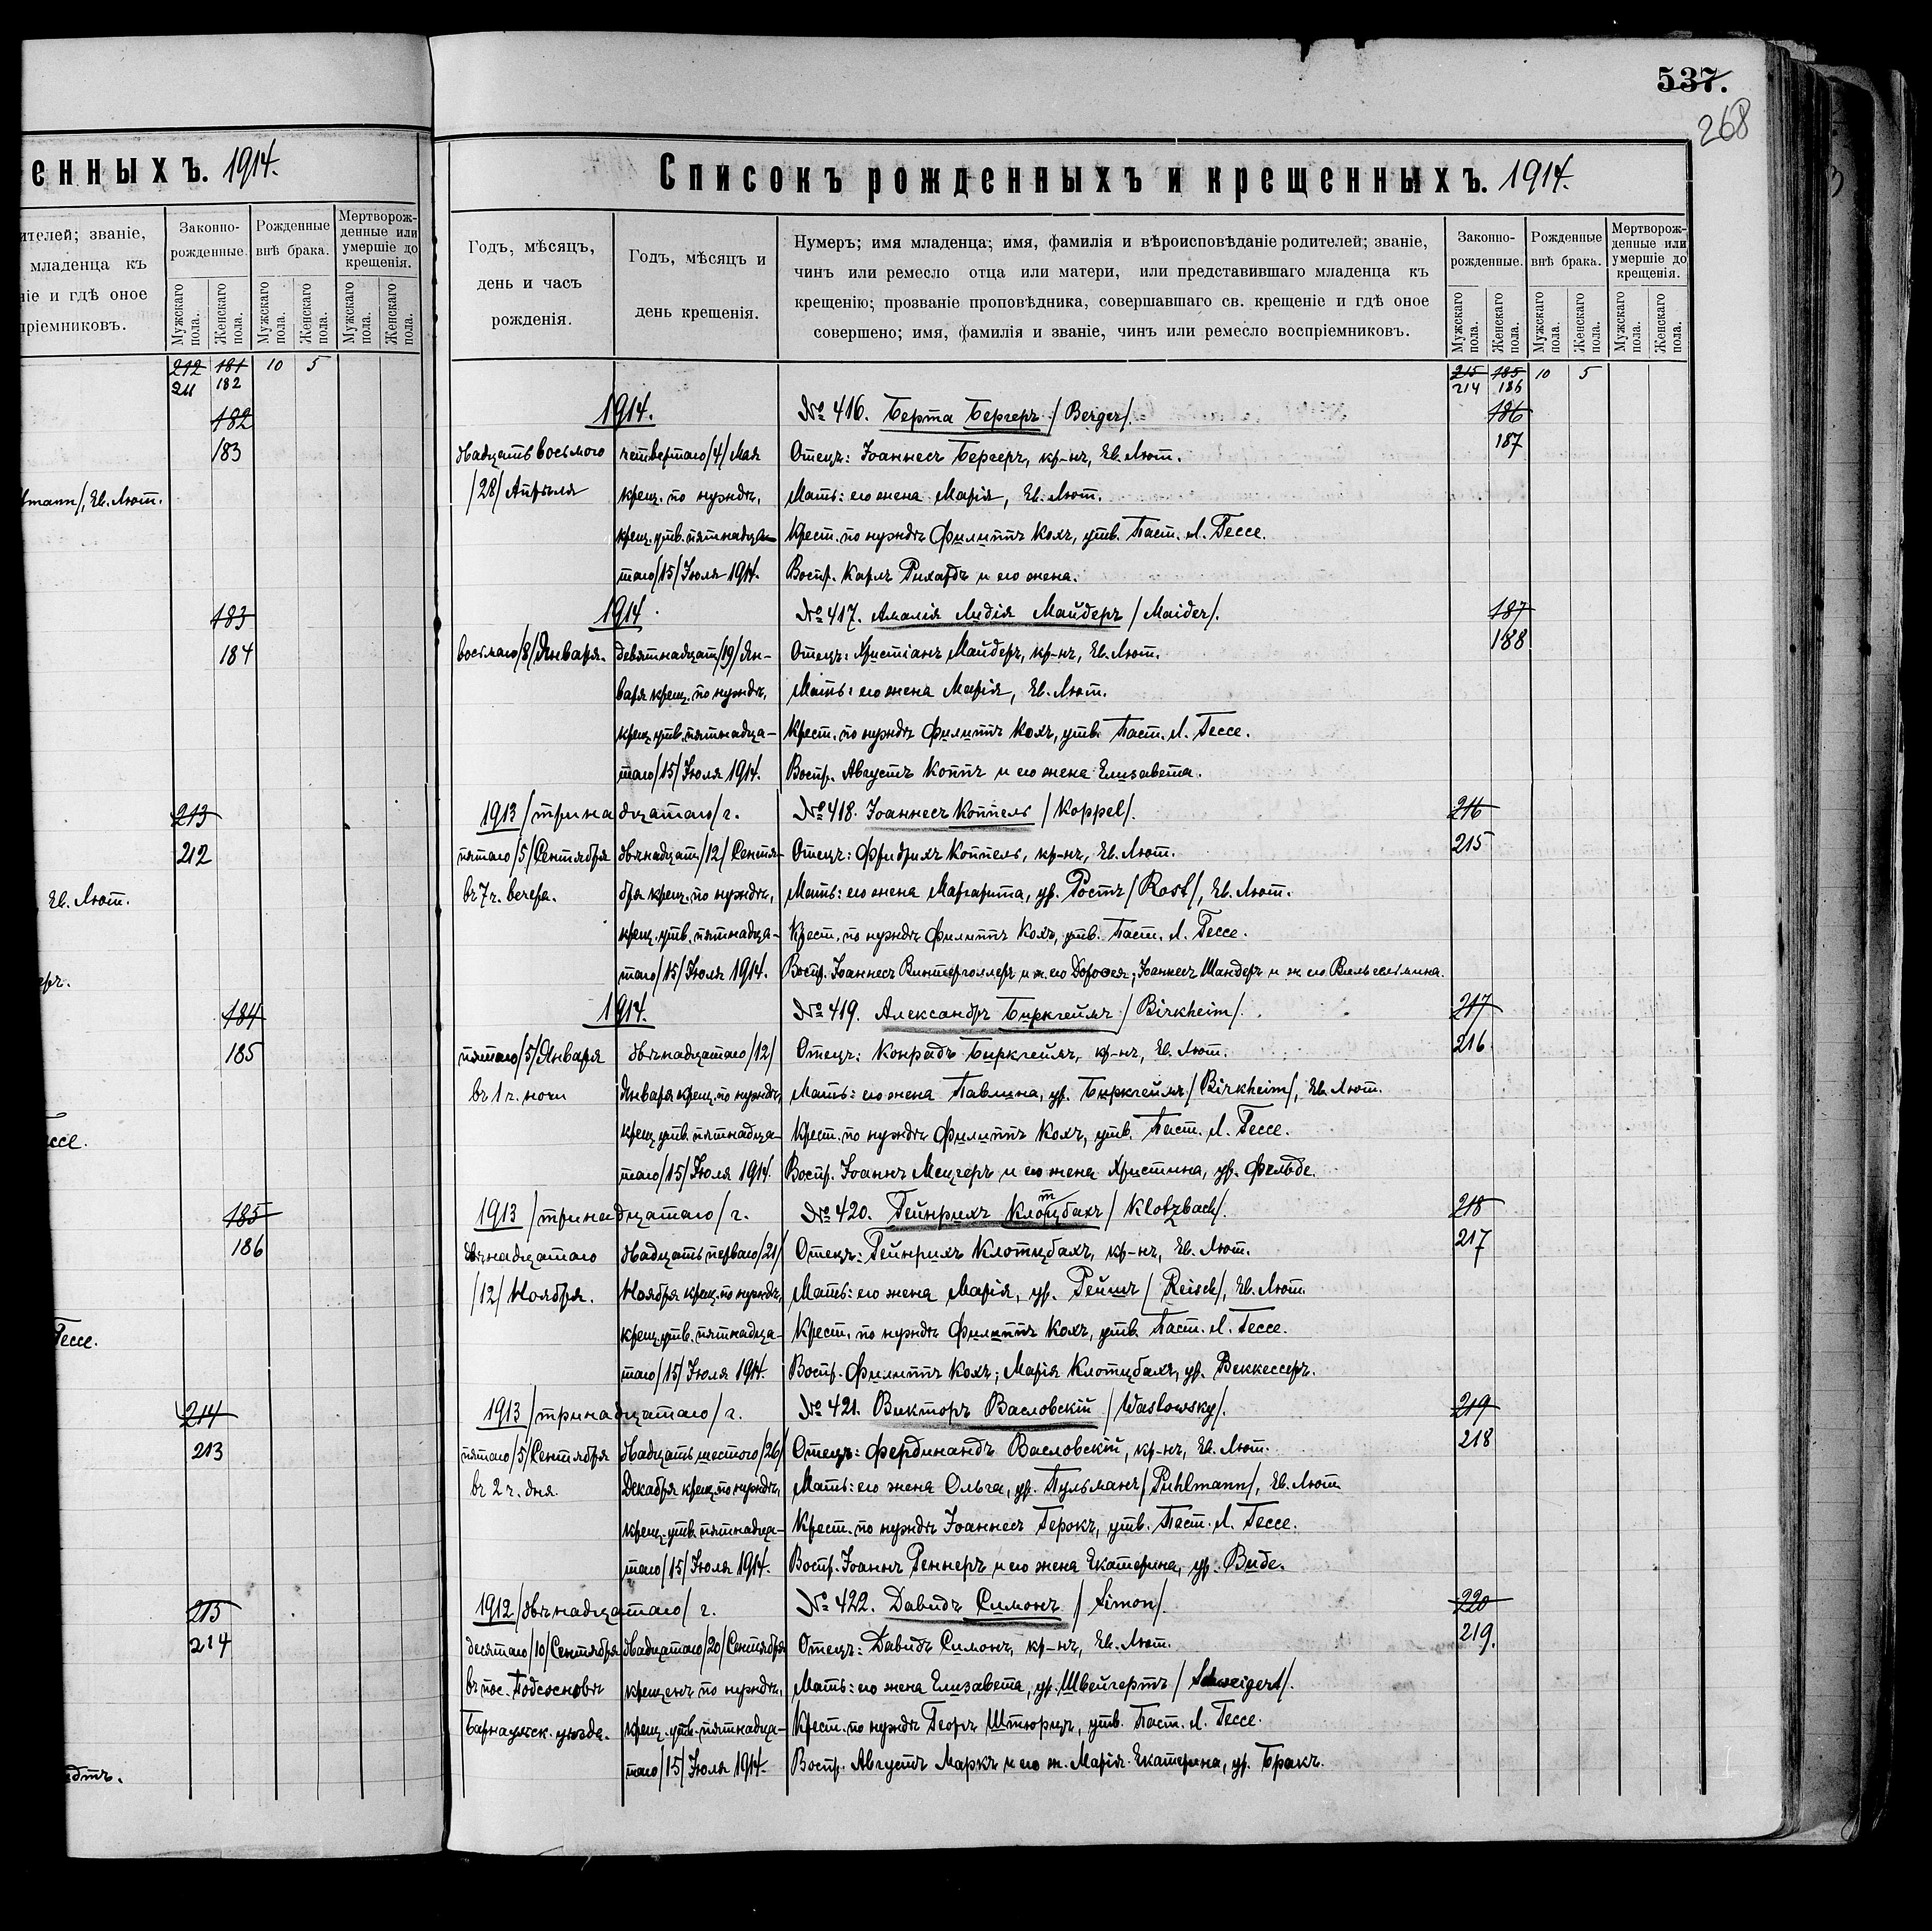 енныхъ. 1914.
ителей; званіе,
младенца къ
ніе и гдѣ оное
пріемниковъ.
Законно-рожденные.
Рожденные внѣ брака.
Мертворож-денные или умершіе до крещенія.
Мужскаго пола.
Женскаго пола.
Мужскаго пола.
Женскаго пола.
Мужскаго пола.
Женскаго пола.
212 181 10 5
211 182
182
183
mann/, Ев. Лют.
183
184
213
212
Ев. Лют.
184
185
185
186
Гессе.
214
213
215
214
537.
268
Списокъ рожденныхъ и крещенныхъ. 1914.
Годъ, мѣсяцъ, день и часъ рожденія.
Годъ, мѣсяцъ и день крещенія.
Нумеръ; имя младенца; имя, фамилія и вѣроисповѣданіе родителей; званіе,
чинъ или ремесло отца или матери, или представившаго младенца къ
крещенію; прозваніе проповѣдника, совершавшаго св. крещеніе и гдѣ оное
совершено; имя, фамилія и званіе, чинъ или ремесло воспріемниковъ.
Законно-рожденные.
Рожденные внѣ брака.
Мертворож-денные или умершіе до крещенія.
Мужскаго пола.
Женскаго пола.
Мужскаго пола.
Женскаго пола.
Мужскаго пола.
Женскаго пола.
215 185 10 5
214 186
1914. № 416. Берта Бергеръ /Berger/. 186
двадцать восьмого четвертаго /4/ Мая Отецъ: Іоаннесъ Бергеръ, кр-нъ, Ев. Лют. 187
/28/ Апрѣля крещ. по нуждѣ, Мать: его жена Марія, Ев. Лют.
крещ. утв. пятнадца- Крест. по нуждѣ Филиппъ Кохъ, утв. Паст. Л. Гессе.
таго /15/ Іюля 1914. Воспр. Карлъ Рихардъ и его жена.
1914. № 417. Амалія Лидія Майдеръ /Maider/. 187
восьмаго /8/ Января. девятнадцат /19/ Ян- Отецъ: Христіанъ Майдеръ, кр-нъ, Ев. Лют. 188
варя крещ. по нуждѣ, Мать: его жена Марія, Ев. Лют.
крещ. утв. пятнадца- Крест. по нуждѣ Филиппъ Кохъ, утв. Паст. Л. Гессе.
таго /15/ Іюля 1914. Воспр. Августъ Коппъ и его жена Елизавета.
1913 /тринадцатаго/ г. № 418. Іоаннесъ Коппель /Koppel/. 216
пятаго /5/ Сентября двѣнадцат /12/ Сентя- Отецъ: Фридрихъ Коппель, кр-нъ, Ев. Лют. 215
въ 7 ч. вечера. бря крещ. по нуждѣ, Мать: его жена Маргарита, ур. Ростъ /Rost/, Ев. Лют.
крещ. утв. пятнадца- Крест. по нуждѣ Филиппъ Кохъ, утв. Паст. Л. Гессе.
таго /15/ Іюля 1914. Воспр. Іоаннесъ Винтерголлеръ и ж. его Доровея; Іоаннесъ Шандеръ и ж. его Вильгельмина.
1914. № 419. Александръ Биркгеймъ /Birkheim/. 217
пятаго /5/ Января двѣнадцатаго /12/ Отецъ: Конрадъ Биркгеймъ, кр-нъ, Ев. Лют. 216
въ 1 ч. ночи Января крещ. по нуждѣ, Мать: его жена Павлина, ур. Биркгеймъ /Birkheim/, Ев. Лют.
крещ. утв. пятнадца- Крест. по нуждѣ Филиппъ Кохъ, утв. Паст. Л. Гессе.
таго /15/ Іюля 1914. Воспр. Іоаннъ Мецгеръ и его жена Христина, ур. Фельде.
1913 /тринадцатаго/ г. № 420. Гейнрихъ Клотцбахъ /Klotzbach/. 218
двѣнадцатаго двадцать перваго /21/ Отецъ: Гейнрихъ Клотцбахъ, кр-нъ, Ев. Лют. 217
/12/ Ноября. Ноября крещ. по нуждѣ, Мать: его жена Марія, ур. Рейшъ /Reisch/, Ев. Лют.
крещ. утв. пятнадца- Крест. по нуждѣ Филиппъ Кохъ, утв. Паст. Л. Гессе.
таго /15/ Іюля 1914. Воспр. Филиппъ Кохъ; Марія Клотцбахъ, ур. Веккессеръ.
1913 /тринадцатаго/ г. № 421. Викторъ Васловскій /Waslowsky/. 219
пятаго /5/ Сентября двадцать шестого /26/ Отецъ: Фердинандъ Васловскій, кр-нъ, Ев. Лют. 218
въ 2 ч. дня. Декабря крещ. по нуждѣ, Мать: его жена Ольга, ур. Пульманъ /Puhlmann/, Ев. Лют.
крещ. утв. пятнадца- Крест. по нуждѣ Іоаннесъ Герокъ, утв. Паст. Л. Гессе.
таго /15/ Іюля 1914. Воспр. Іоаннъ Реннеръ и его жена Екатерина, ур. Виде.
1912 /двѣнадцатаго/ г. № 422. Давидъ Симонъ /Simon/. 220
десятаго /10/ Сентября двадцатаго /20/ Сентября Отецъ: Давидъ Симонъ, кр-нъ, Ев. Лют. 219.
въ пос. Подсосновѣ крещенъ по нуждѣ, Мать: его жена Елизавета, ур. Швейгертъ /Schweigert/.
Барнаульск. уѣзда. крещ. утв. пятнадца- Крест. по нуждѣ Георгъ Штюрцъ, утв. Паст. Л. Гессе.
таго /15/ Іюля 1914. Воспр. Августъ Маркъ и его ж. Марія-Екатерина, ур. Бракъ.